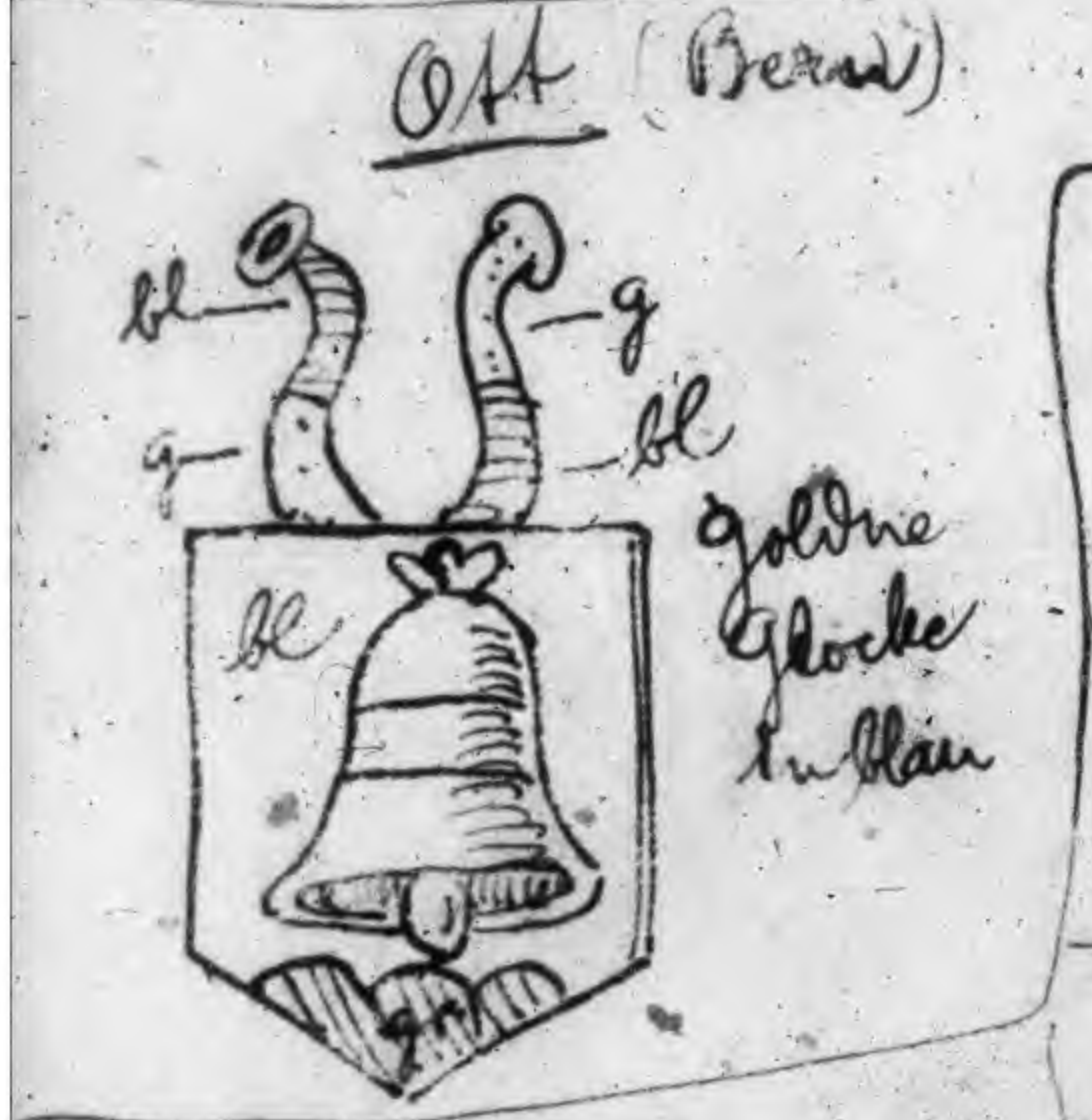 Ott (Bernd)
bl
g
g
bl
bl
goldne
Glocke
in blau
gr